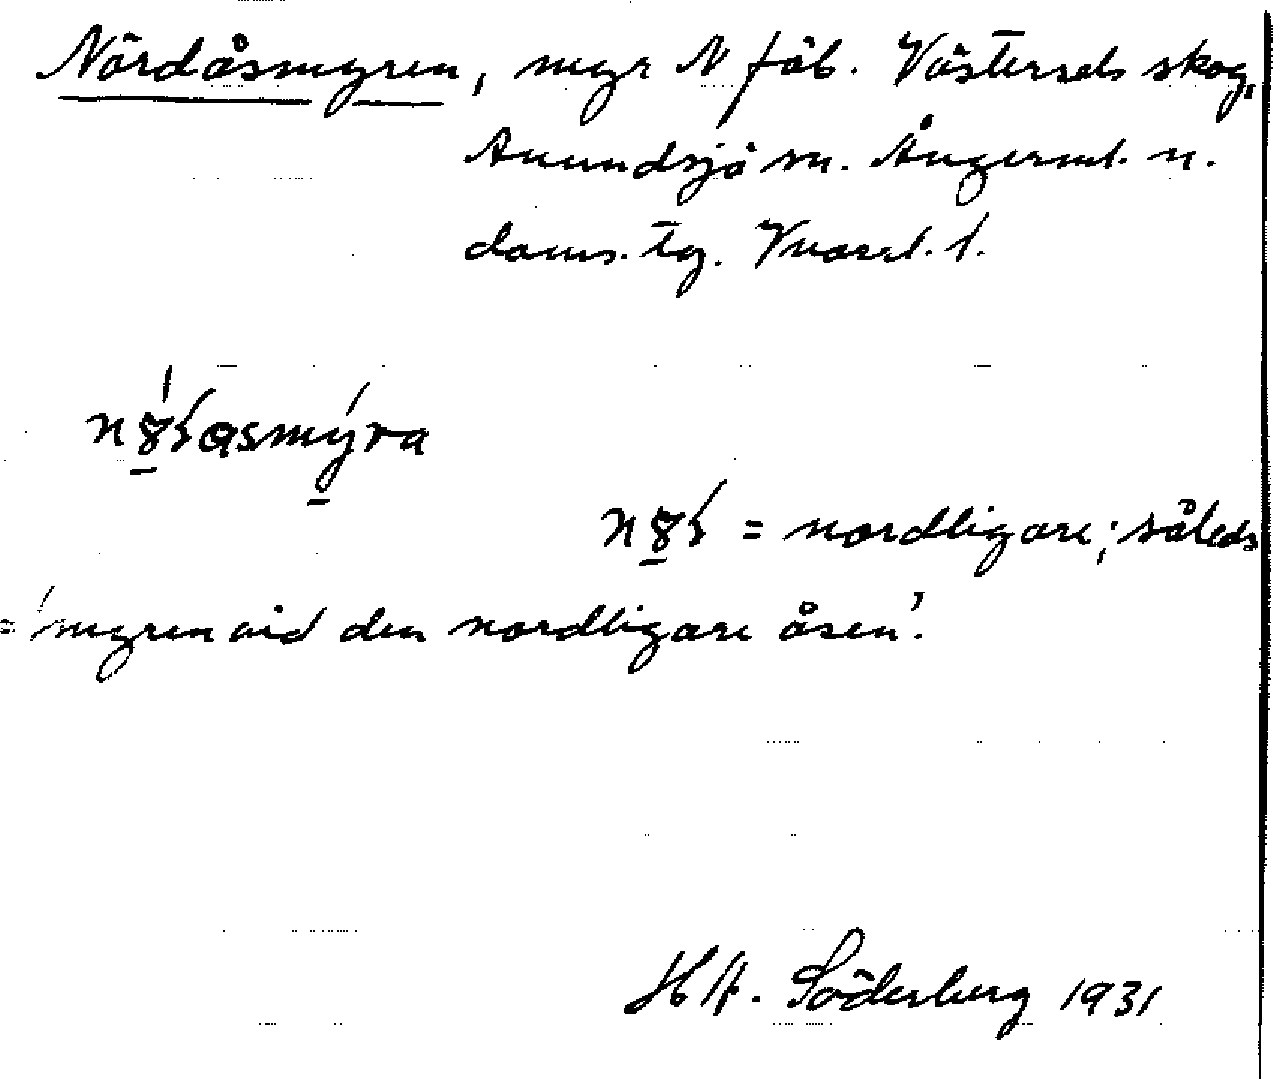 Nördåsmyren, myr N fäb. Västersels skog,
Anundsjö sn. Ångerml. n.
doms. tg. Vnorrl. l.
myra
= nordligare; således
= 'myren vid den nordligare åsen'.
H A. Söderberg 1931